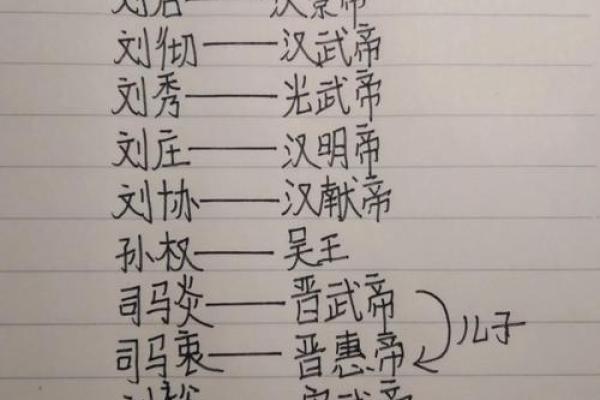 刘启——汉景帝
刘彻——汉武帝
刘秀——光武帝
刘庄——汉明帝
刘协——汉献帝
孙权——吴王
司马炎——晋武帝
儿子
司马衷——晋惠帝
刘裕——宋武帝